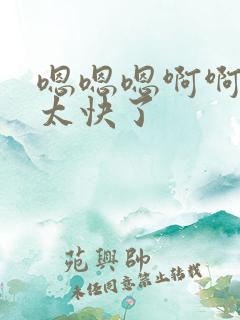 嗯嗯嗯啊啊
太快了
苑兴帅
未经同意禁止转载